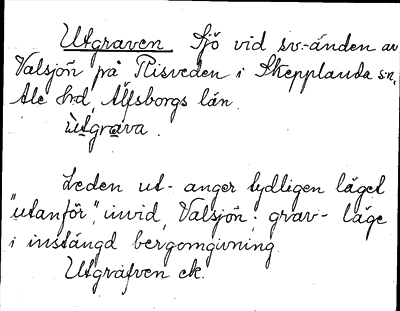 Utgraven Sjö vid sv.-änden av
Valsjön på Risveden i Skepplanda sn,
Ale hd, Älfsborgs län.
ùtgrava.
Leden ut- anger tydligen läget
"utanför", invid, Valsjön; grav- läge
i instängd bergomgivning.
Utgrafven ek.